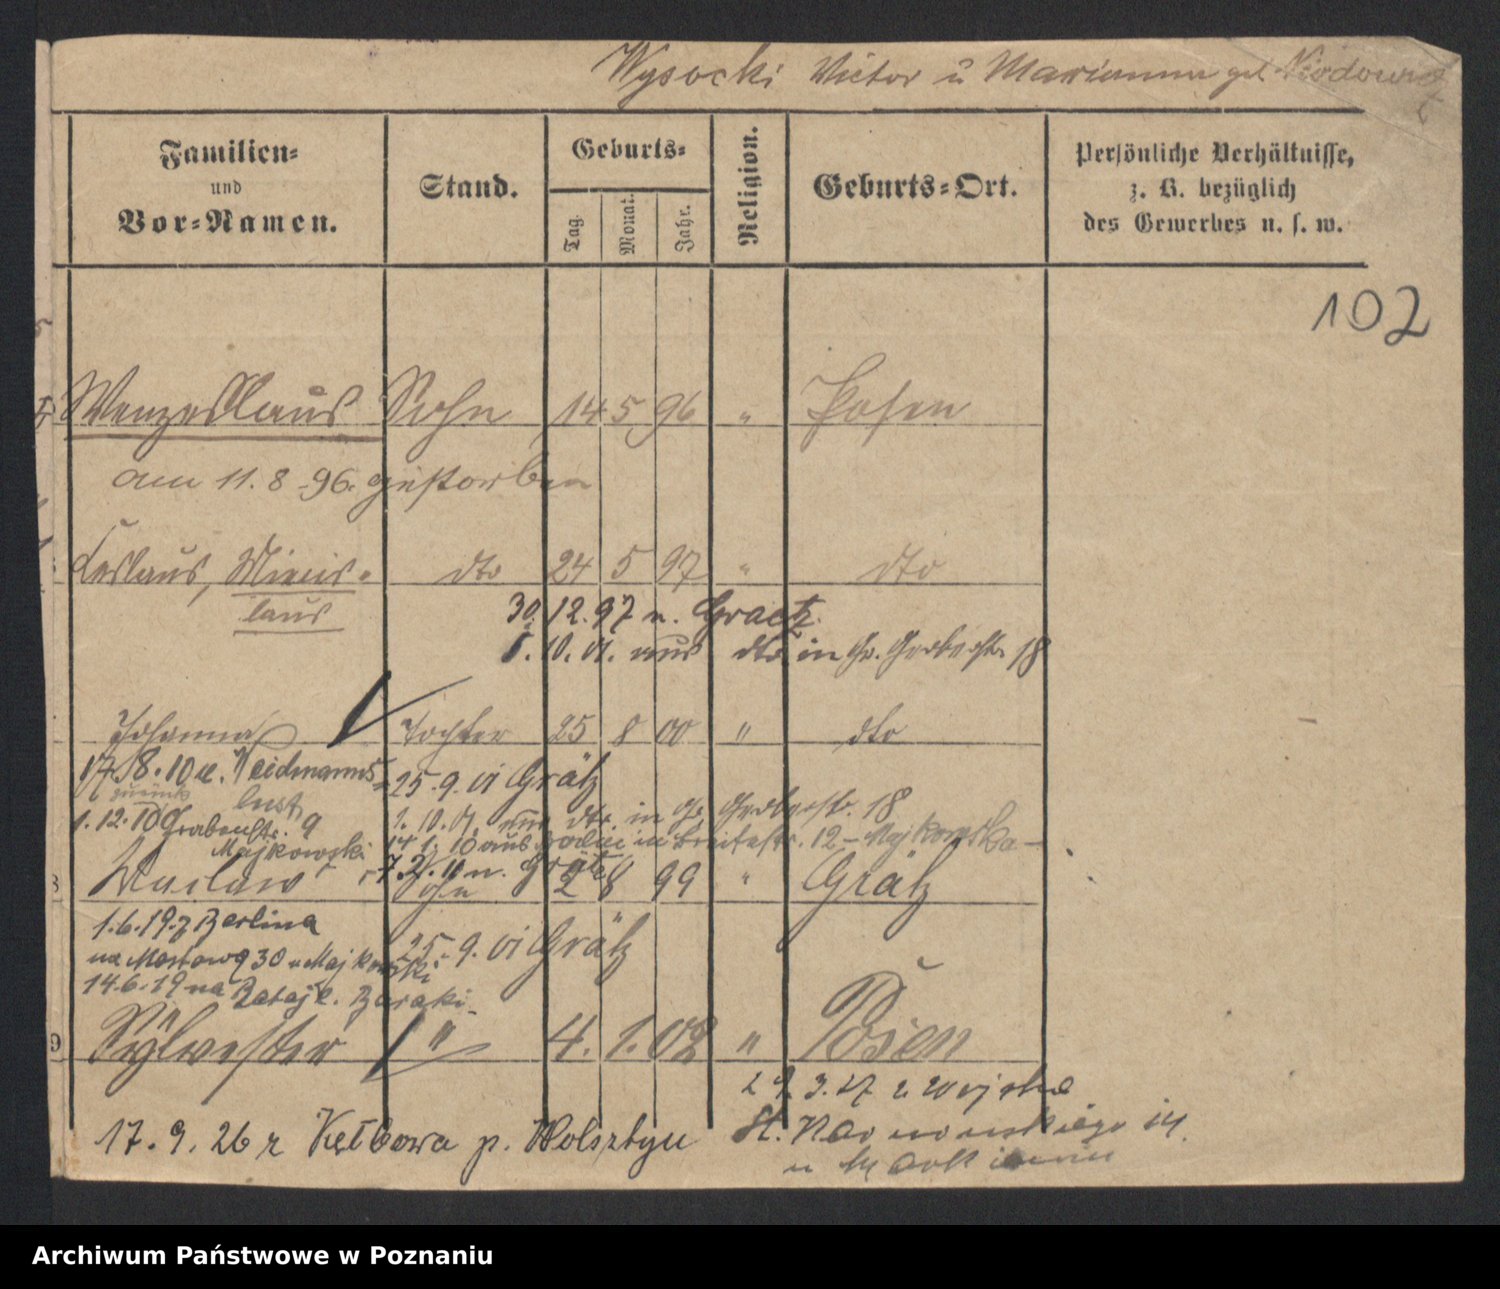 Wysocki Victor u Marianna geb
Familien= und Vor=Namen.
Stand.
Geburts=
Tag. Monat. Jahr.
Religion.
Geburts=Ort.
Persönliche Verhältnisse, z. B. bezüglich des Gewerbes u. s. w.
102
Wenzeslaus Sohn 14 5 96 " Posen
am 11. 8. 96. gestorben
Ceslaus, Miecis= dto 24 5 97 " dto
laus
30. 12. 97 n. Graetz
10. 01. aus dto in Gr. Gerberstr. 18
Johanna Tochter 25 8 00 " dto
17. 8. 10 n. Weidmanns=
lust
25. 9. 01 Grätz
zurück
1. 10. 01. aus dto. in Gr. Gerberstr. 18
1. 12. 10 Grabenstr. 9
Majkowski
14 1. 10 aus in Breitestr. 12 - Majkowska -
7. 2. 10 n. Grätz
Waclaw Sohn 2 8 99 " Grätz
1. 6. 19. z Berlina
na Mostową 30 u Majkowski
25. 9. 01 Grätz
14. 6. 19 na Rataje. Baraki.
9 Sylwester " 4. 1. 02 " Posen
3. 27 z wojska
17. 9. 26 z Kębłowa p. Wolsztyn
St.
u
Archiwum Państwowe w Poznaniu